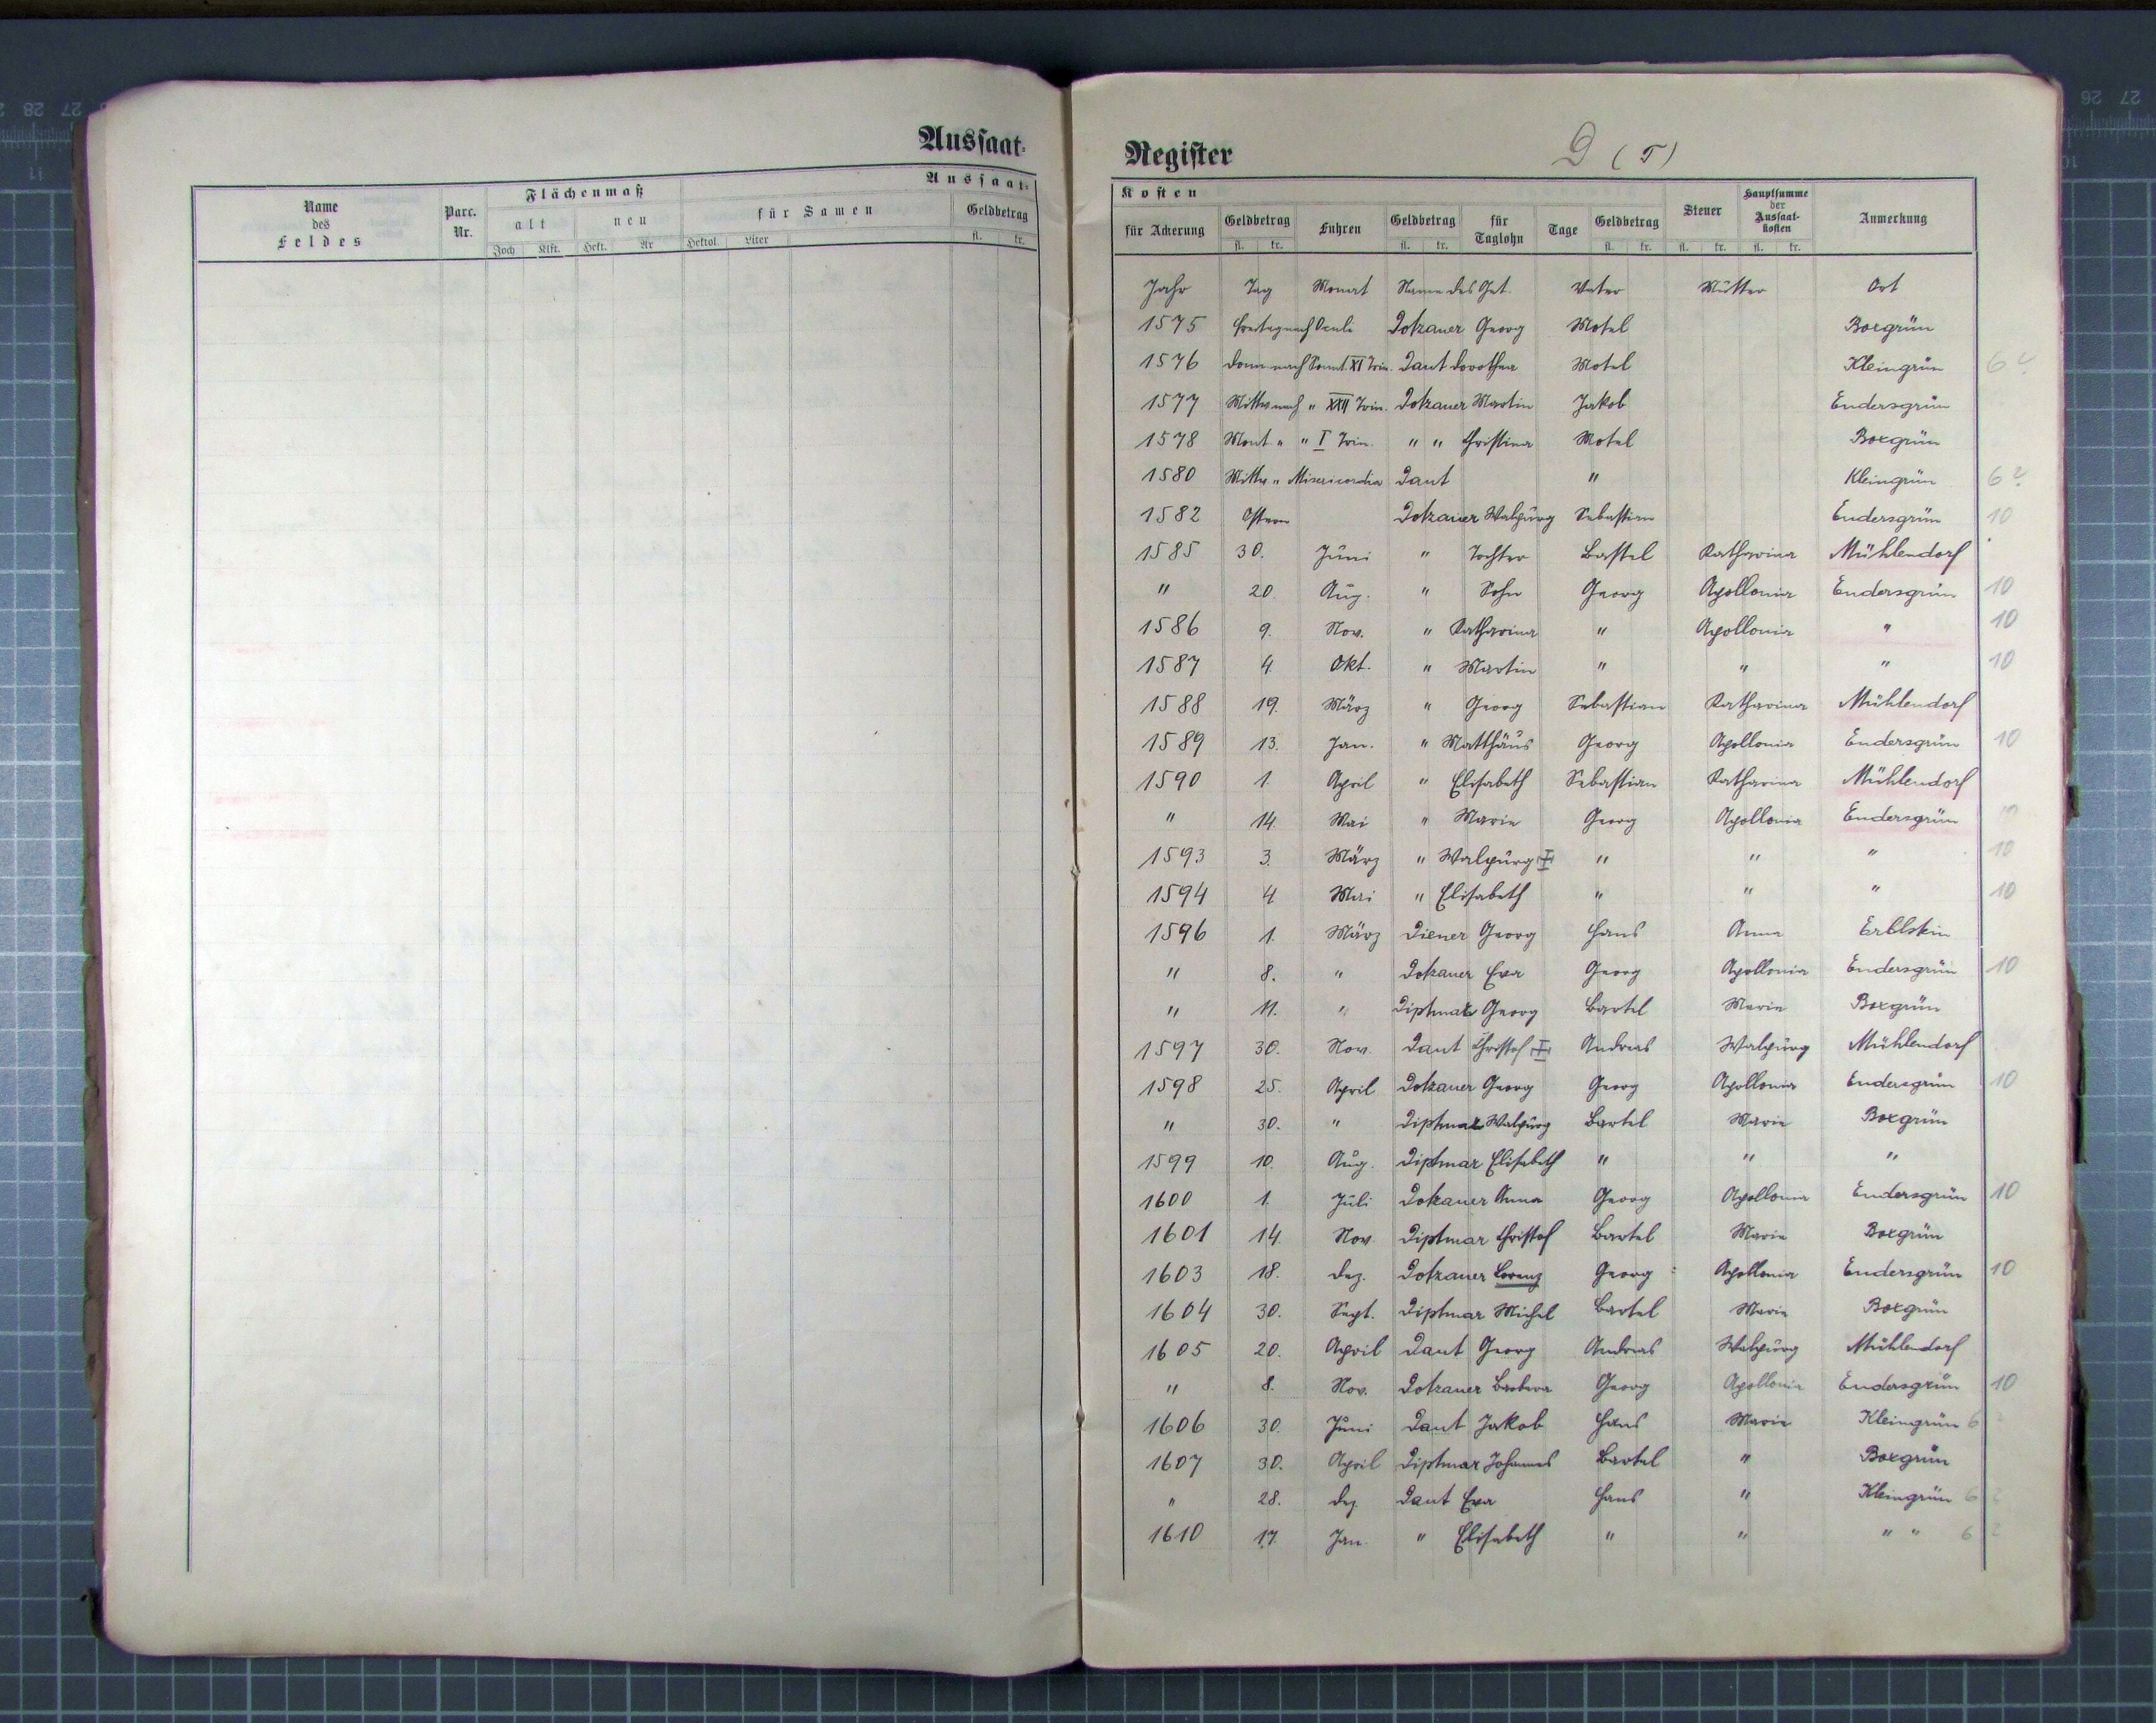 Aussaat-
Aussaat-
Name des Feldes
Parc. Nr.
Flächenmaß
alt
neu
für Samen
Geldbetrag
Joch Klft. Hekt. Ar Hektol. Liter fl. kr.
Register
D (T)
Kosten
für Ackerung
Geldbetrag
Fuhren
Geldbetrag
für Taglohn
Tage
Geldbetrag
Steuer
Hauptsumme der Aussaat-kosten
Anmerkung
fl. kr. fl. kr. fl. kr. fl. kr. fl. kr.
Jahr Tag Monat Name des Get. Vater Mutter Ort
1575 Freitag nach Oculi Dotzauer Georg Motel Boxgrün
1576 Donn nach Sonnt. XI Trin. Dant Dorothea Motel Kleingrün 6?
1577 Mittw nach " XXII Trin. Dotzauer Martin Jakob Endersgrün
1578 Mont " " I Trin. " " Christina Motel Boxgrün
1580 Mittw " Misericordia Dant " Kleingrün 6?
1582 Ostern Dotzauer Walpurg Sebastian Endersgrün 10
1585 30. Juni " Tochter Bastel Katharina Mühlendorf
" 20. Aug. " Sohn Georg Apollonia Endersgrün 10
1586 9. Nov. " Katharina " Apollonia " 10
1587 4 Okt. " Martin " " " 10
1588 19. März " Georg Sebastian Katharina Mühlendorf
1589 13. Jan. " Matthäus Georg Apollonia Endersgrün 10
1590 1. April " Elisabeth Sebastian Katharina Mühlendorf
" 14. Mai " Marie Georg Apollonia Endersgrün 10
1593 3. März " Walpurg " " " 10
1594 4 Mai " Elisabeth " " " 10
1596 1. März Diener Georg Hans Anna
" 8. " Dotzauer Eva Georg Apollonia Endersgrün 10
" 11. " Diptmar Georg Bartel Marie Boxgrün
1597 30. Nov. Dant Christof Andreas Walpurg Mühlendorf
1598 25. April Dotzauer Georg Georg Apollonia Endersgrün 10
" 30. " Diptmar Walpurg Bartel Marie Boxgrün
1599 10. Aug. Diptmar Elisabeth " " "
1600 1. Juli Dotzauer Anna Georg Apollonia Endersgrün 10
1601 14. Nov. Diptmar Christof Bartel Marie Boxgrün
1603 18. Dez. Dotzauer Lorenz Georg Apollonia Endersgrün 10
1604 30. Sept. Diptmar Michel Bartel Marie Boxgrün
1605 20. April Dant Georg Andreas Walpurg Mühlendorf
" 8. Nov. Dotzauer Barbara Georg Apollonia Endersgrün 10
1606 30. Juni Dant Jakob Hans Marie Kleingrün 6 ?
1607 30. April Diptmar Johannes Bartel " Boxgrün
" 28. Dez. Dant Eva Hans " Kleingrün 6 ?
1610 17. Jan. " Elisabeth " " " " 6 ?